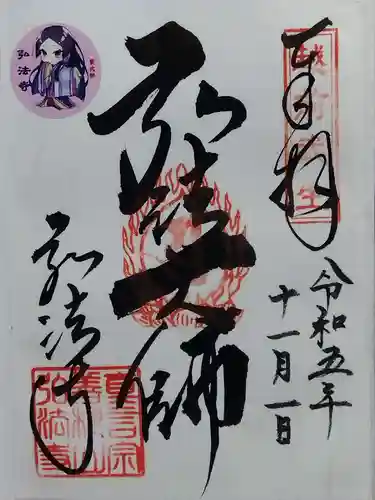 奉拝
令和五年
十一月一日
弘法大師
弘法寺
弘法寺
真言宗
弘法寺